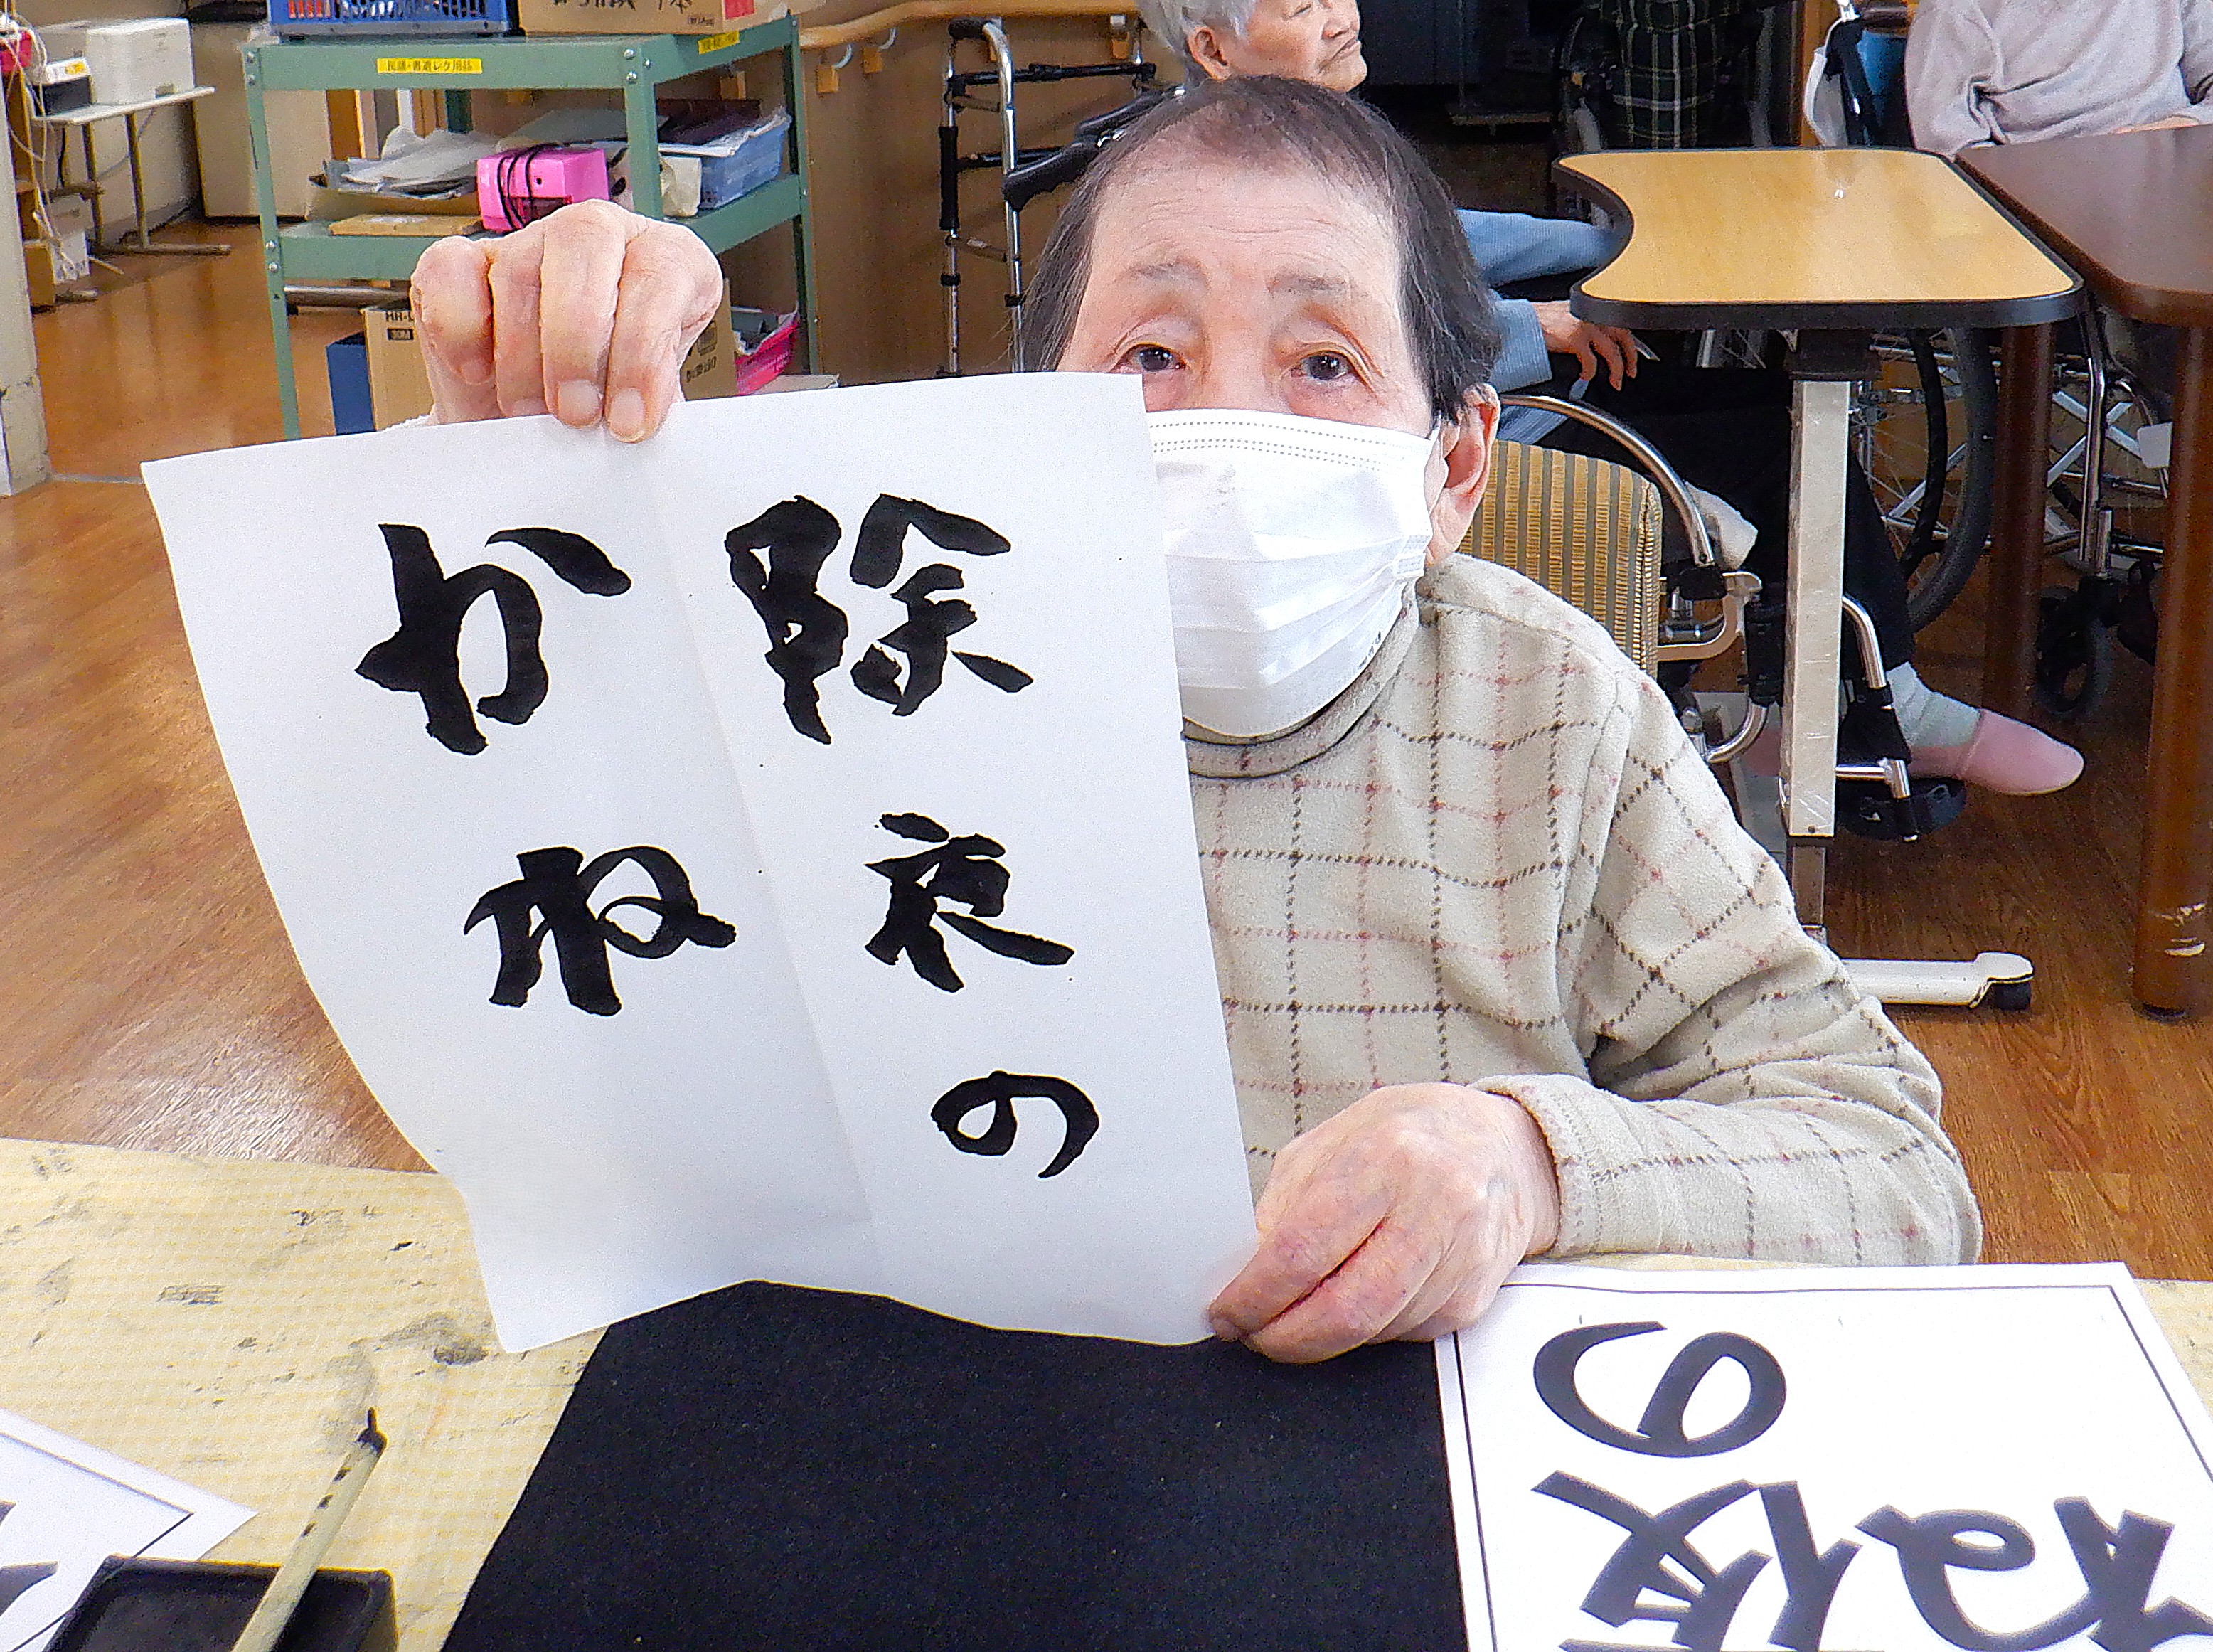 除夜の
かね
民謡・書道レク用品
の
夜
ね